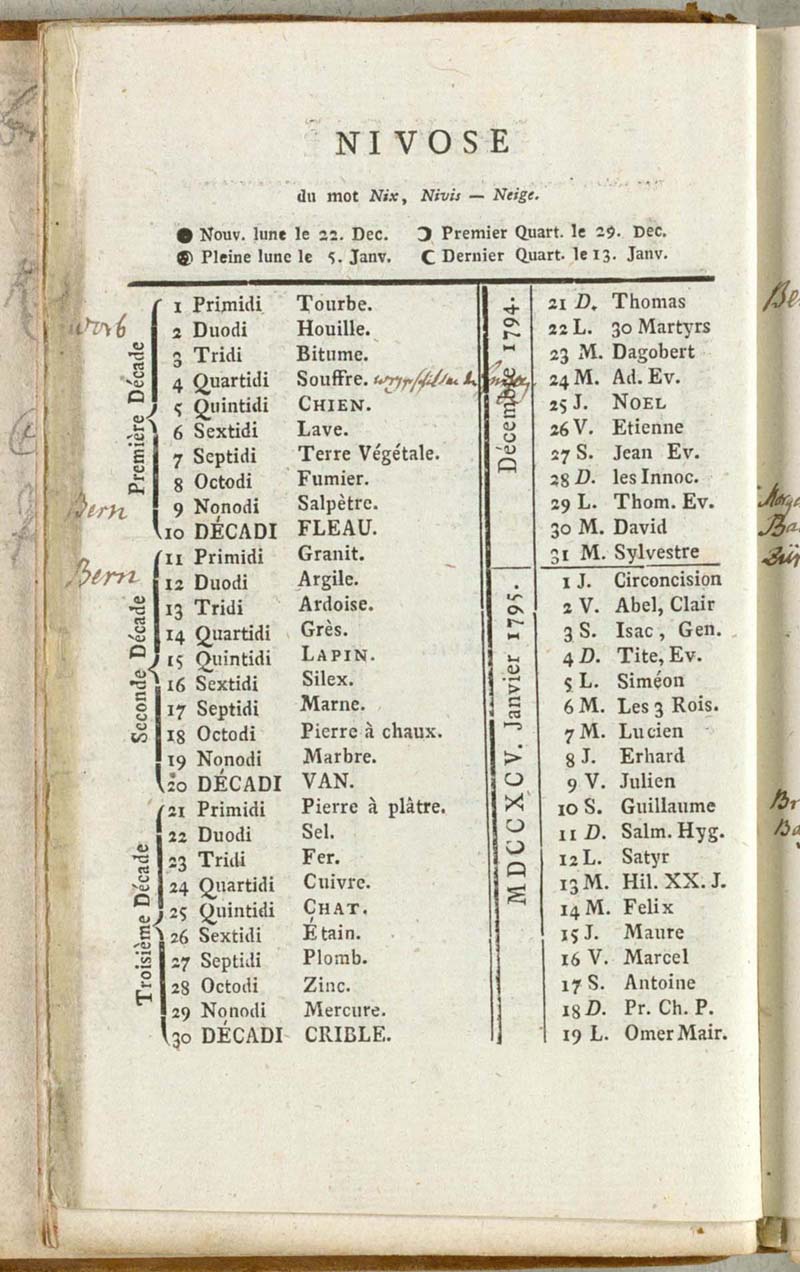 NIVOSE
du mot Nix, Nivis — Neige.
Nouv. lune le 22. Dec. Premier Quart. le 29. Dec.
Pleine lune le 5. Janv. Dernier Quart. le 13. Janv.
Première Décade
1 Primidi Tourbe.
2 Duodi Houille.
3 Tridi Bitume.
4 Quartidi Souffre.
5 Quintidi CHIEN.
6 Sextidi Lave.
7 Septidi Terre Végétale.
8 Octodi Fumier.
9 Nonodi Salpètre.
10 DÉCADI FLEAU.
Bern
Seconde Décade
11 Primidi Granit.
Bern
12 Duodi Argile.
13 Tridi Ardoise.
14 Quartidi Grès.
15 Quintidi LAPIN.
16 Sextidi Silex.
17 Septidi Marne.
18 Octodi Pierre à chaux.
19 Nonodi Marbre.
20 DÉCADI VAN.
Troisième Décade
21 Primidi Pierre à plâtre.
22 Duodi Sel.
23 Tridi Fer.
24 Quartidi Cuivre.
25 Quintidi CHAT.
26 Sextidi Étain.
27 Septidi Plomb.
28 Octodi Zinc.
29 Nonodi Mercure.
30 DÉCADI CRIBLE.
Décembre 1794.
21 D. Thomas
22 L. 30 Martyrs
23 M. Dagobert
24 M. Ad. Ev.
25 J. NOEL
26 V. Etienne
27 S. Jean Ev.
28 D. les Innoc.
29 L. Thom. Ev.
30 M. David
31 M. Sylvestre
MDCCXCV. Janvier 1795.
1 J. Circoncision
2 V. Abel, Clair
3 S. Isac, Gen.
4 D. Tite, Ev.
5 L. Siméon
6 M. Les 3 Rois.
7 M. Lucien
8 J. Erhard
9 V. Julien
10 S. Guillaume
11 D. Salm. Hyg.
12 L. Satyr
13 M. Hil. XX. J.
14 M. Felix
15 J. Maure
16 V. Marcel
17 S. Antoine
18 D. Pr. Ch. P.
19 L. Omer Mair.